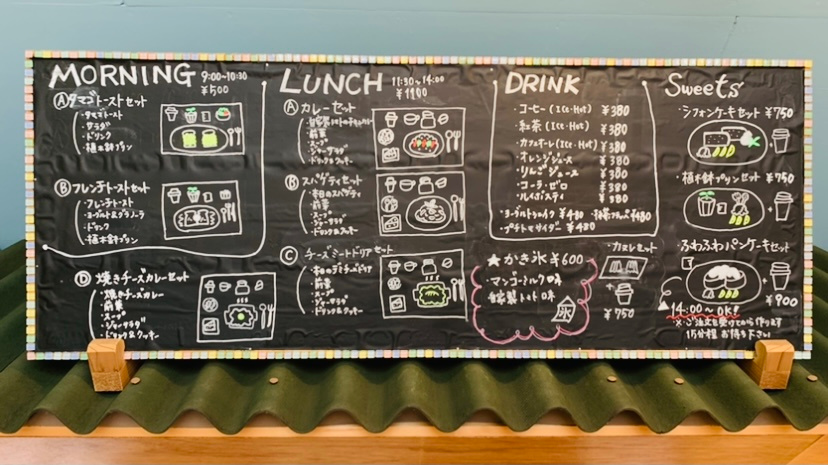 MORNING 9:00~10:30
¥500
Ⓐ タマゴトーストセット
・タマゴトースト
・サラダ
・ドリンク
・植木鉢プリン
Ⓑ フレンチトーストセット
・フレンチトースト
・ヨーグルト&グラノーラ
・ドリンク
・植木鉢プリン
Ⓓ 焼きチーズカレーセット
・焼きチーズカレー
・前菜
・スープ
・ジャーサラダ
・ドリンク&クッキー
LUNCH 11:30~14:00
¥1100
Ⓐ カレーセット
・前菜
・スープ
・ジャーサラダ
・ドリンク&クッキー
Ⓑ スパゲティセット
・本日のスパゲティ
・前菜
・スープ
・ジャーサラダ
・ドリンク&クッキー
Ⓒ チーズミートドリアセット
・前菜
・スープ
・ジャーサラダ
・ドリンク&クッキー
DRINK
・コーヒー (Ice・Hot) ¥380
・紅茶 (Ice・Hot) ¥380
・カフェオーレ (Ice・Hot) ¥380
・オレンジジュース ¥380
・りんごジュース ¥380
・コーラ・ゼロ ¥380
・ルイボスティ ¥380
¥480 ¥480
¥480
★かき氷 ¥600
・マンゴーミルク味
・自家製トマト味
氷
+
¥750
Sweets
・シフォンケーキセット ¥750
+
・植木鉢プリンセット ¥750
+
・ふわふわパンケーキセット
+
¥900
14:00~OK!
※ご注文を受けてから作ります
15分程お待ち下さい